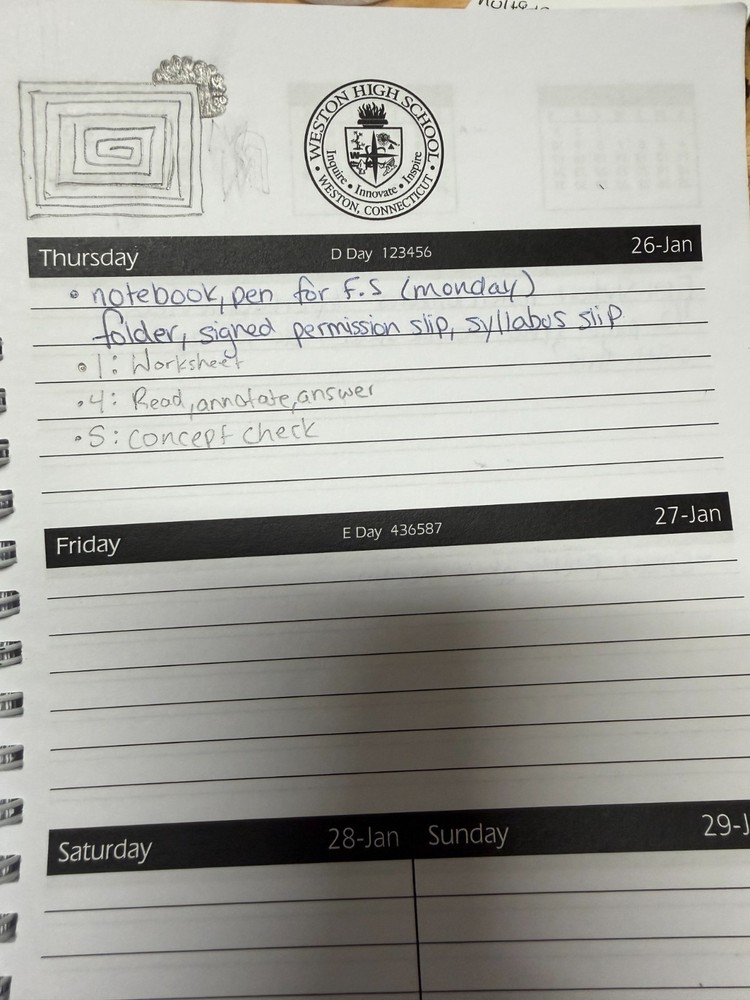 WESTON HIGH SCHOOL
Inquire • Innovate • Inspire
• WESTON, CONNECTICUT •
Thursday D Day 123456 26-Jan
• notebook, pen for F.S (monday)
folder, signed permission slip, syllabus slip
• 1: Worksheet
• 4: Read, annotate, answer
• 5: concept check
Friday E Day 436587 27-Jan
Saturday 28-Jan Sunday 29-J